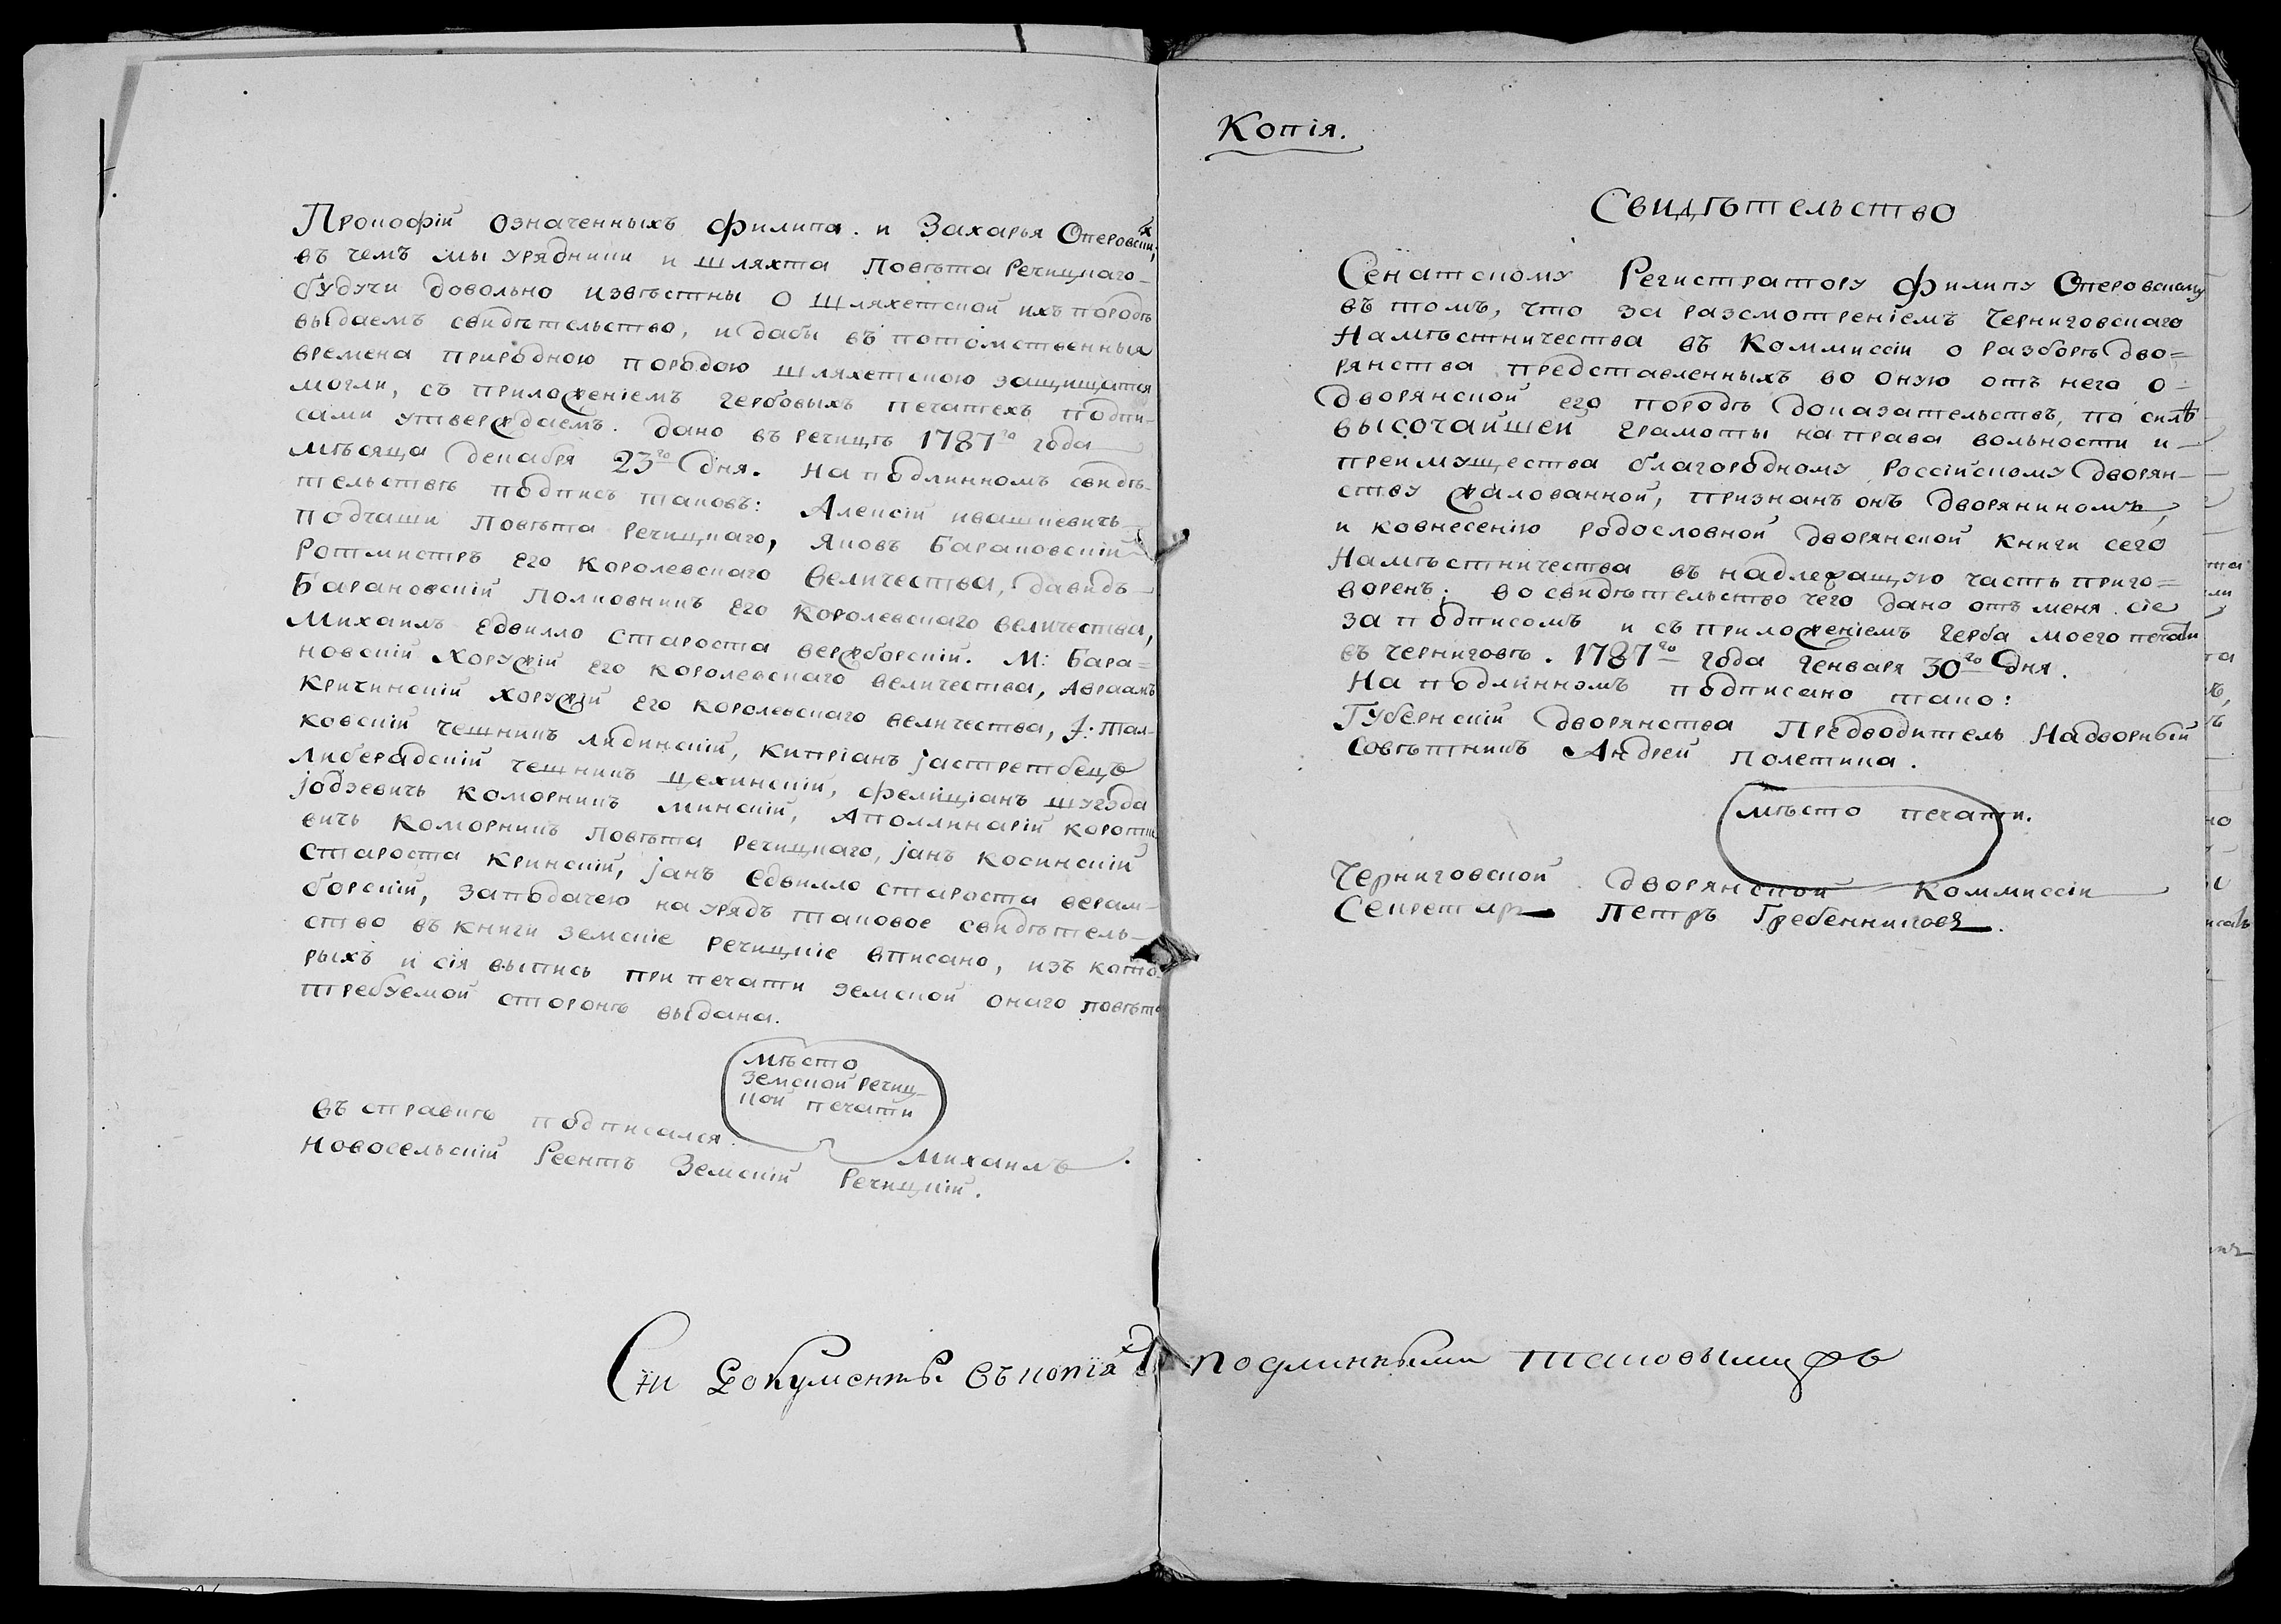 Прокофій означенныхъ Филипа. и Захарья Оперовскихъ,
въ чемъ мы урядники и шляхта Повѣта Речицкаго
будучи довольно извѣстны о шляхетской ихъ породѣ
выдаемъ свидѣтельство, и дабы въ потомственныя
времена природною породою шляхетскою защищатся
могли, съ приложеніемъ гербовыхъ печатехъ подпи-
сами утверждаемъ. Дано въ речицѣ 1787го года
мѣсяца декабря 23го дня. На подлинномъ свидѣ-
тельствѣ подпись таковъ: Алексій ивашкевичь
Подчаши Повѣта Речицкаго, Яковъ Барановскій
Ротмистръ Его Королевскаго Величества, Давидъ
Барановскій Полковникъ Его Королевскаго Величества,
Михаилъ Едвилло Староста верхборскій. М: Бара=
новскій Хоружій Его Королевскаго величества, Авраамъ
Кричинскій Хоружій Его Королевскаго величества, J: Тал-
ковскій чешникъ лидинскій, Кипріанъ Jастрембецъ
Либерадскій чешникъ цехинскій, Феліціанъ шугэда
Jодзевичь Коморникъ минскій, Аполлинарій Коротке
вичь Коморникъ Повѣта Речицкаго, Jанъ Косинскій
Староста Кринскій, Jанъ Едвилло Староста верам-
борскій, заподачею на урядъ таковое свидѣтель-
ство въ книги земскіе речицкіе вписано, изъ кото-
рыхъ и сія выпись при печати земской онаго повѣта
требуемой сторонѣ выдана.
мѣсто
Земской речиц-
кой печати
Въ справкѣ подписался Михаилъ
Новосельскій Реентъ Земскій Речицкій.
Копія.
Свидѣтельство
Сенатскому Регистратору Филипу Оперовскому
въ томъ, что за разсмотреніемъ Черниговскаго
Намѣстничества въ Коммиссіи о разборѣ дво=
рянства представленныхъ во оную отъ него о
дворянской его породѣ доказательствъ, по силѣ
высочайшей грамоты на права вольности и
преимущества благородному Россійскому дворян-
ству жалованной, признанъ онъ дворяниномъ,
и ковнесенію родословной дворянской книги сего
Намѣстничества въ надлежащую часть приго=
воренъ; во свидѣтельство чего дано отъ меня сіе
за подписомъ и съ приложеніемъ герба моего печати
въ черниговѣ. 1787го года Генваря 30го дня.
На подлинномъ подписано тако:
Губернскій дворянства Предводитель Надворный
Совѣтникъ Андрей Полетика.
Мѣсто печати.
Черниговской дворянской Коммиссіи
Секретарь Петръ Гребенниковъ.
Сіи Документы въ копіяхъ съ подлинными таковыми